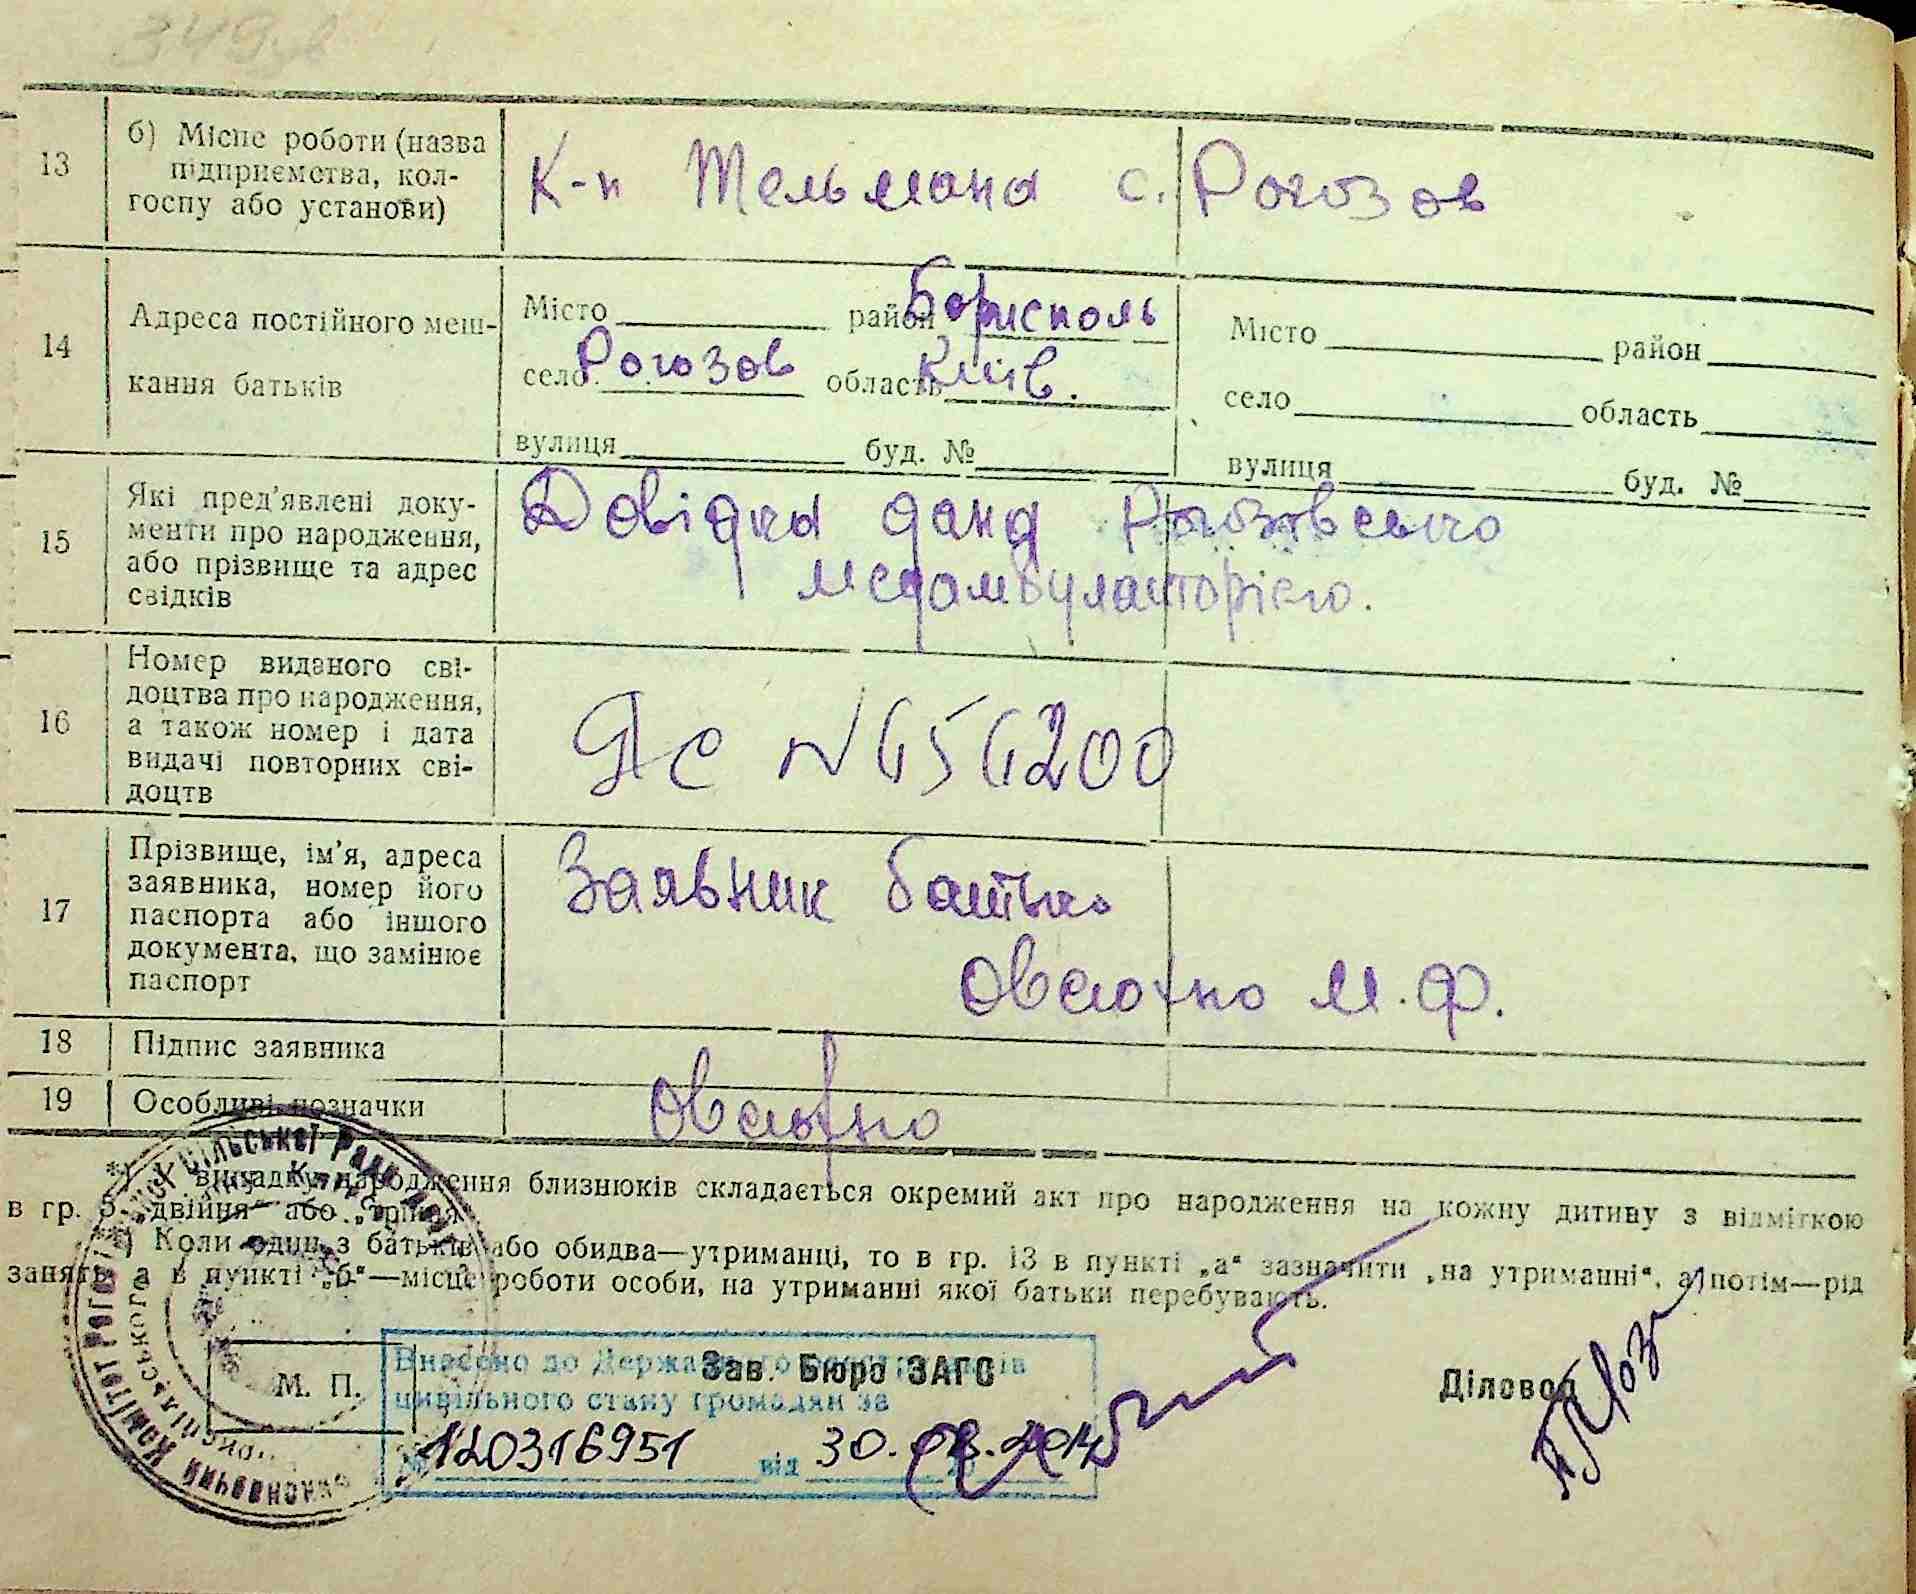 13
б) Місце роботи (назва
підприємства, кол-
госпу або установи)
К-п Тельмана с. Рогозов
14
Адреса постійного меш-
кання батьків
Місто район Борисполь
село Рогозов область Київ.
вулиця буд. №
Місто район
село область
вулиця буд. №
15
Які пред'явлені доку-
менти про народження,
або прізвище та адрес
свідків
Довідка дана Рогозовсько
медамбулаторією.
16
Номер виданого сві-
доцтва про народження,
а також номер і дата
видачі повторних сві-
доцтв
ЯС N 454200
17
Прізвище, ім'я, адреса
заявника, номер його
паспорта або іншого
документа, що замінює
паспорт
Заявник батько
Овсютко М. Ф.
18 Підпис заявника
19 Особливі позначки
Овсютко
*) У випадку народження близнюків складається окремий акт про народження на кожну дитину з відміткою
в гр. 5 „двійня“ або „трійня“
Коли один з батьків або обидва—утриманці, то в гр. 13 в пункті „а“ зазначити „на утриманні“, а потім—рід
занять, а в пункті „б“—місце роботи особи, на утриманні якої батьки перебувають.
М. П.
Зав. Бюро ЗАГС
Діловод
Внесено до Державного реєстру актів
цивільного стану громадян за
№ 120316951 від 30. 2014
Виконавчий Комітет Сільської Ради